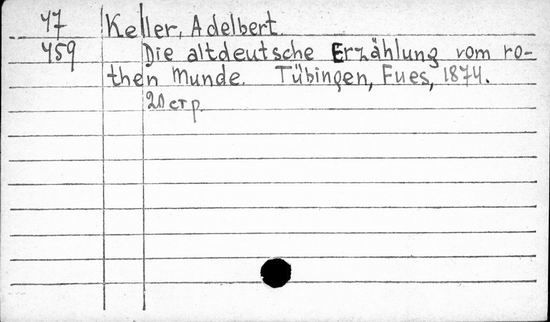 47 Keller, Adelbert.
459 Die altdeutsche Erzählung vom ro-
then Munde. Tübingen, Fues, 1874.
20 стр.